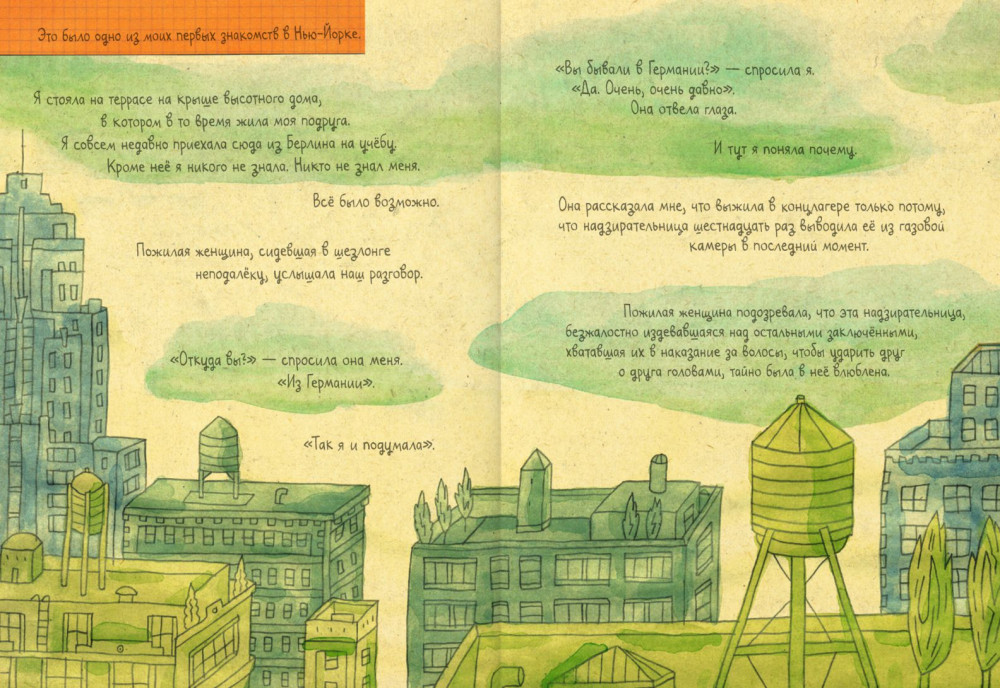 Это было одно из моих первых знакомств в Нью-Йорке.
Я стояла на террасе на крыше высотного дома,
в котором в то время жила моя подруга.
Я совсем недавно приехала сюда из Берлина на учёбу.
Кроме неё я никого не знала. Никто не знал меня.
Всё было возможно.
Пожилая женщина, сидевшая в шезлонге
неподалёку, услышала наш разговор.
«Откуда вы?» — спросила она меня.
«Из Германии».
«Так я и подумала».
«Вы бывали в Германии?» — спросила я.
«Да. Очень, очень давно».
Она отвела глаза.
И тут я поняла почему.
Она рассказала мне, что выжила в концлагере только потому,
что надзирательница шестнадцать раз выводила её из газовой
камеры в последний момент.
Пожилая женщина подозревала, что эта надзирательница,
безжалостно издевавшаяся над остальными заключёнными,
хватавшая их в наказание за волосы, чтобы ударить друг
о друга головами, тайно была в неё влюблена.